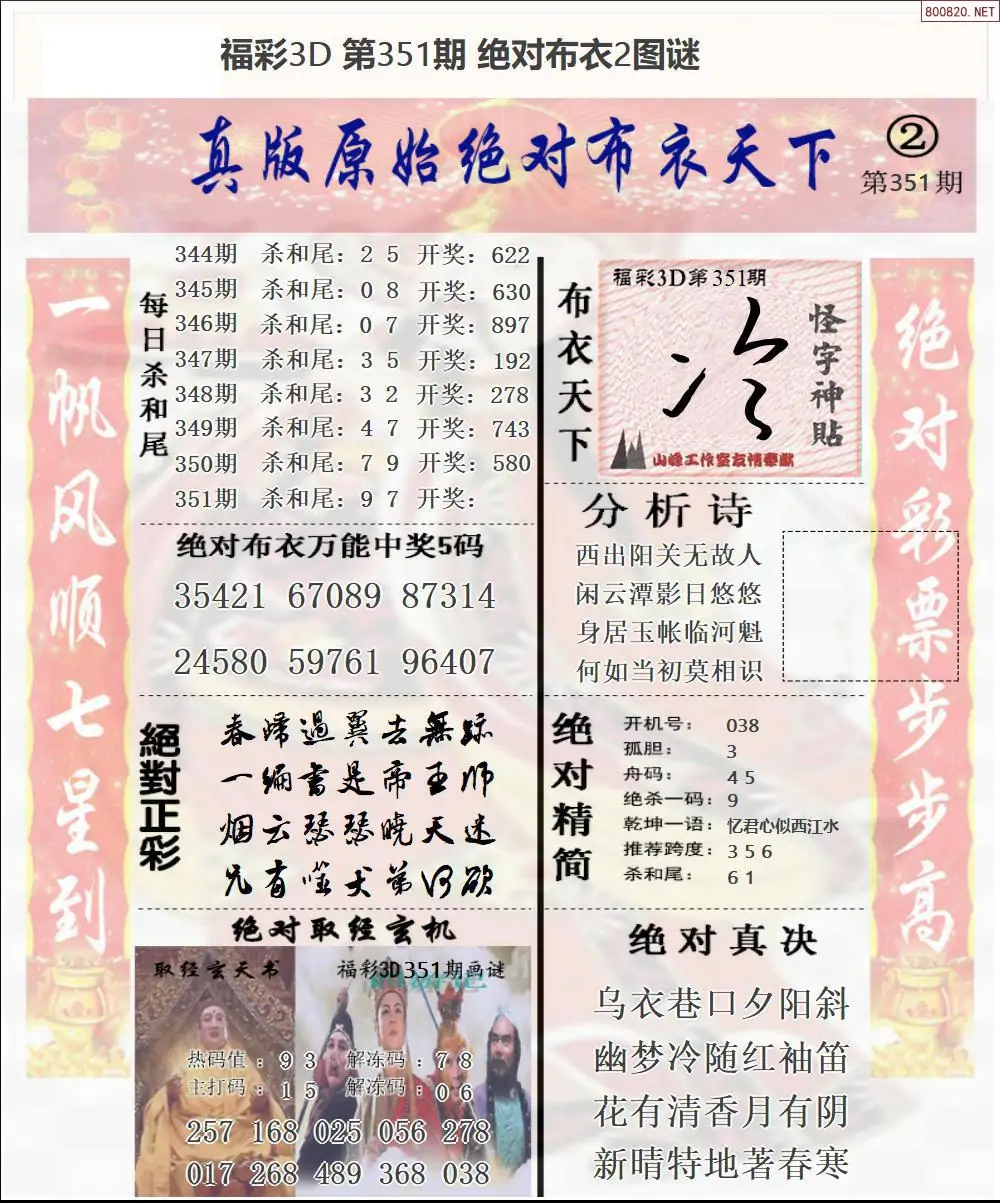 800820.NET
福彩3D 第351期 绝对布衣2图谜
真版原始绝对布衣天下
②
第351期
一帆风顺七星到
每日杀和尾
344期 杀和尾：2 5 开奖：622
345期 杀和尾：0 8 开奖：630
346期 杀和尾：0 7 开奖：897
347期 杀和尾：3 5 开奖：192
348期 杀和尾：3 2 开奖：278
349期 杀和尾：4 7 开奖：743
350期 杀和尾：7 9 开奖：580
351期 杀和尾：9 7 开奖：
绝对布衣万能中奖5码
35421 67089 87314
24580 59761 96407
絕對正彩
春歸過翼去無踪
一编書是帝王师
烟云瑟瑟晓天迷
兄有噬犬弟何欲
绝对取经玄机
取经玄天书
福彩3D351期画谜
热码值：9 3 解冻码：7 8
主打码：1 5 解冻码：0 6
257 168 025 056 278
017 268 489 368 038
布衣天下
福彩3D第351期
冷
怪字神貼
山峰工作室友情奉献
分析诗
西出阳关无故人
闲云潭影日悠悠
身居玉帐临河魁
何如当初莫相识
绝对精简
开机号：038
孤胆：3
舟码：4 5
绝杀一码：9
乾坤一语：忆君心似西江水
推荐跨度：3 5 6
杀和尾：6 1
绝对真决
乌衣巷口夕阳斜
幽梦冷随红袖笛
花有清香月有阴
新晴特地著春寒
绝对彩票步步高